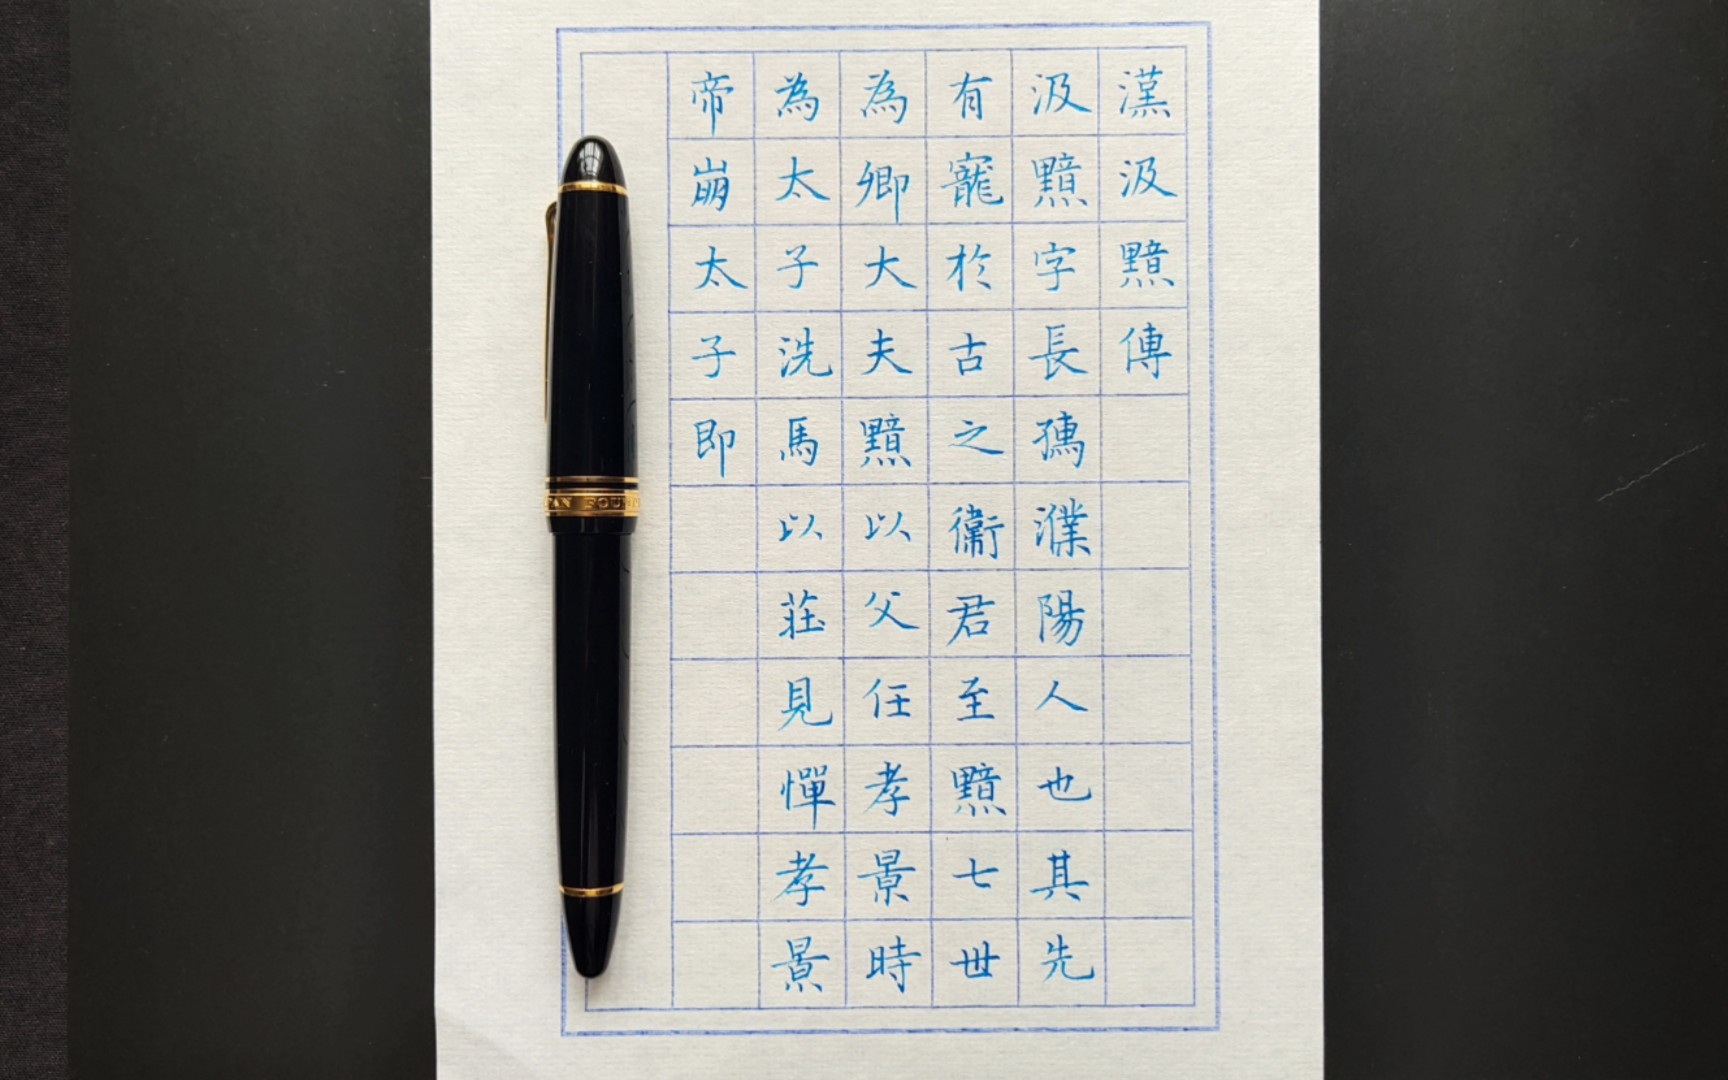 漢汲黯傳
汲黯字長孺濮陽人也其先
有寵於古之衞君至黯七世
為卿大夫黯以父任孝景時
為太子洗馬以莊見憚孝景
帝崩太子即